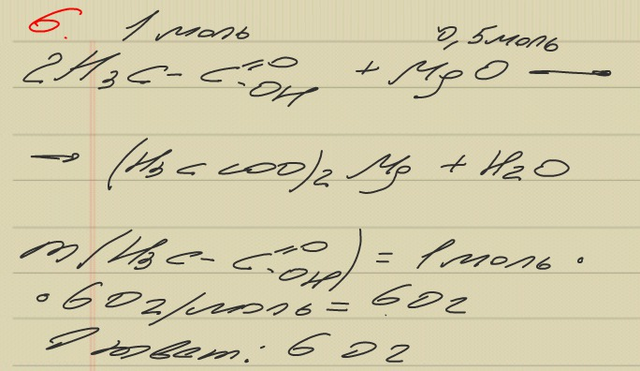 6. 1 моль 0,5 моль
2H3C-C=O -OH + MgO →
→ (H3C COO)2 Mg + H2O
m(H3C-C=O -OH) = 1 моль ·
· 60 г/моль = 60 г
Ответ: 60 г